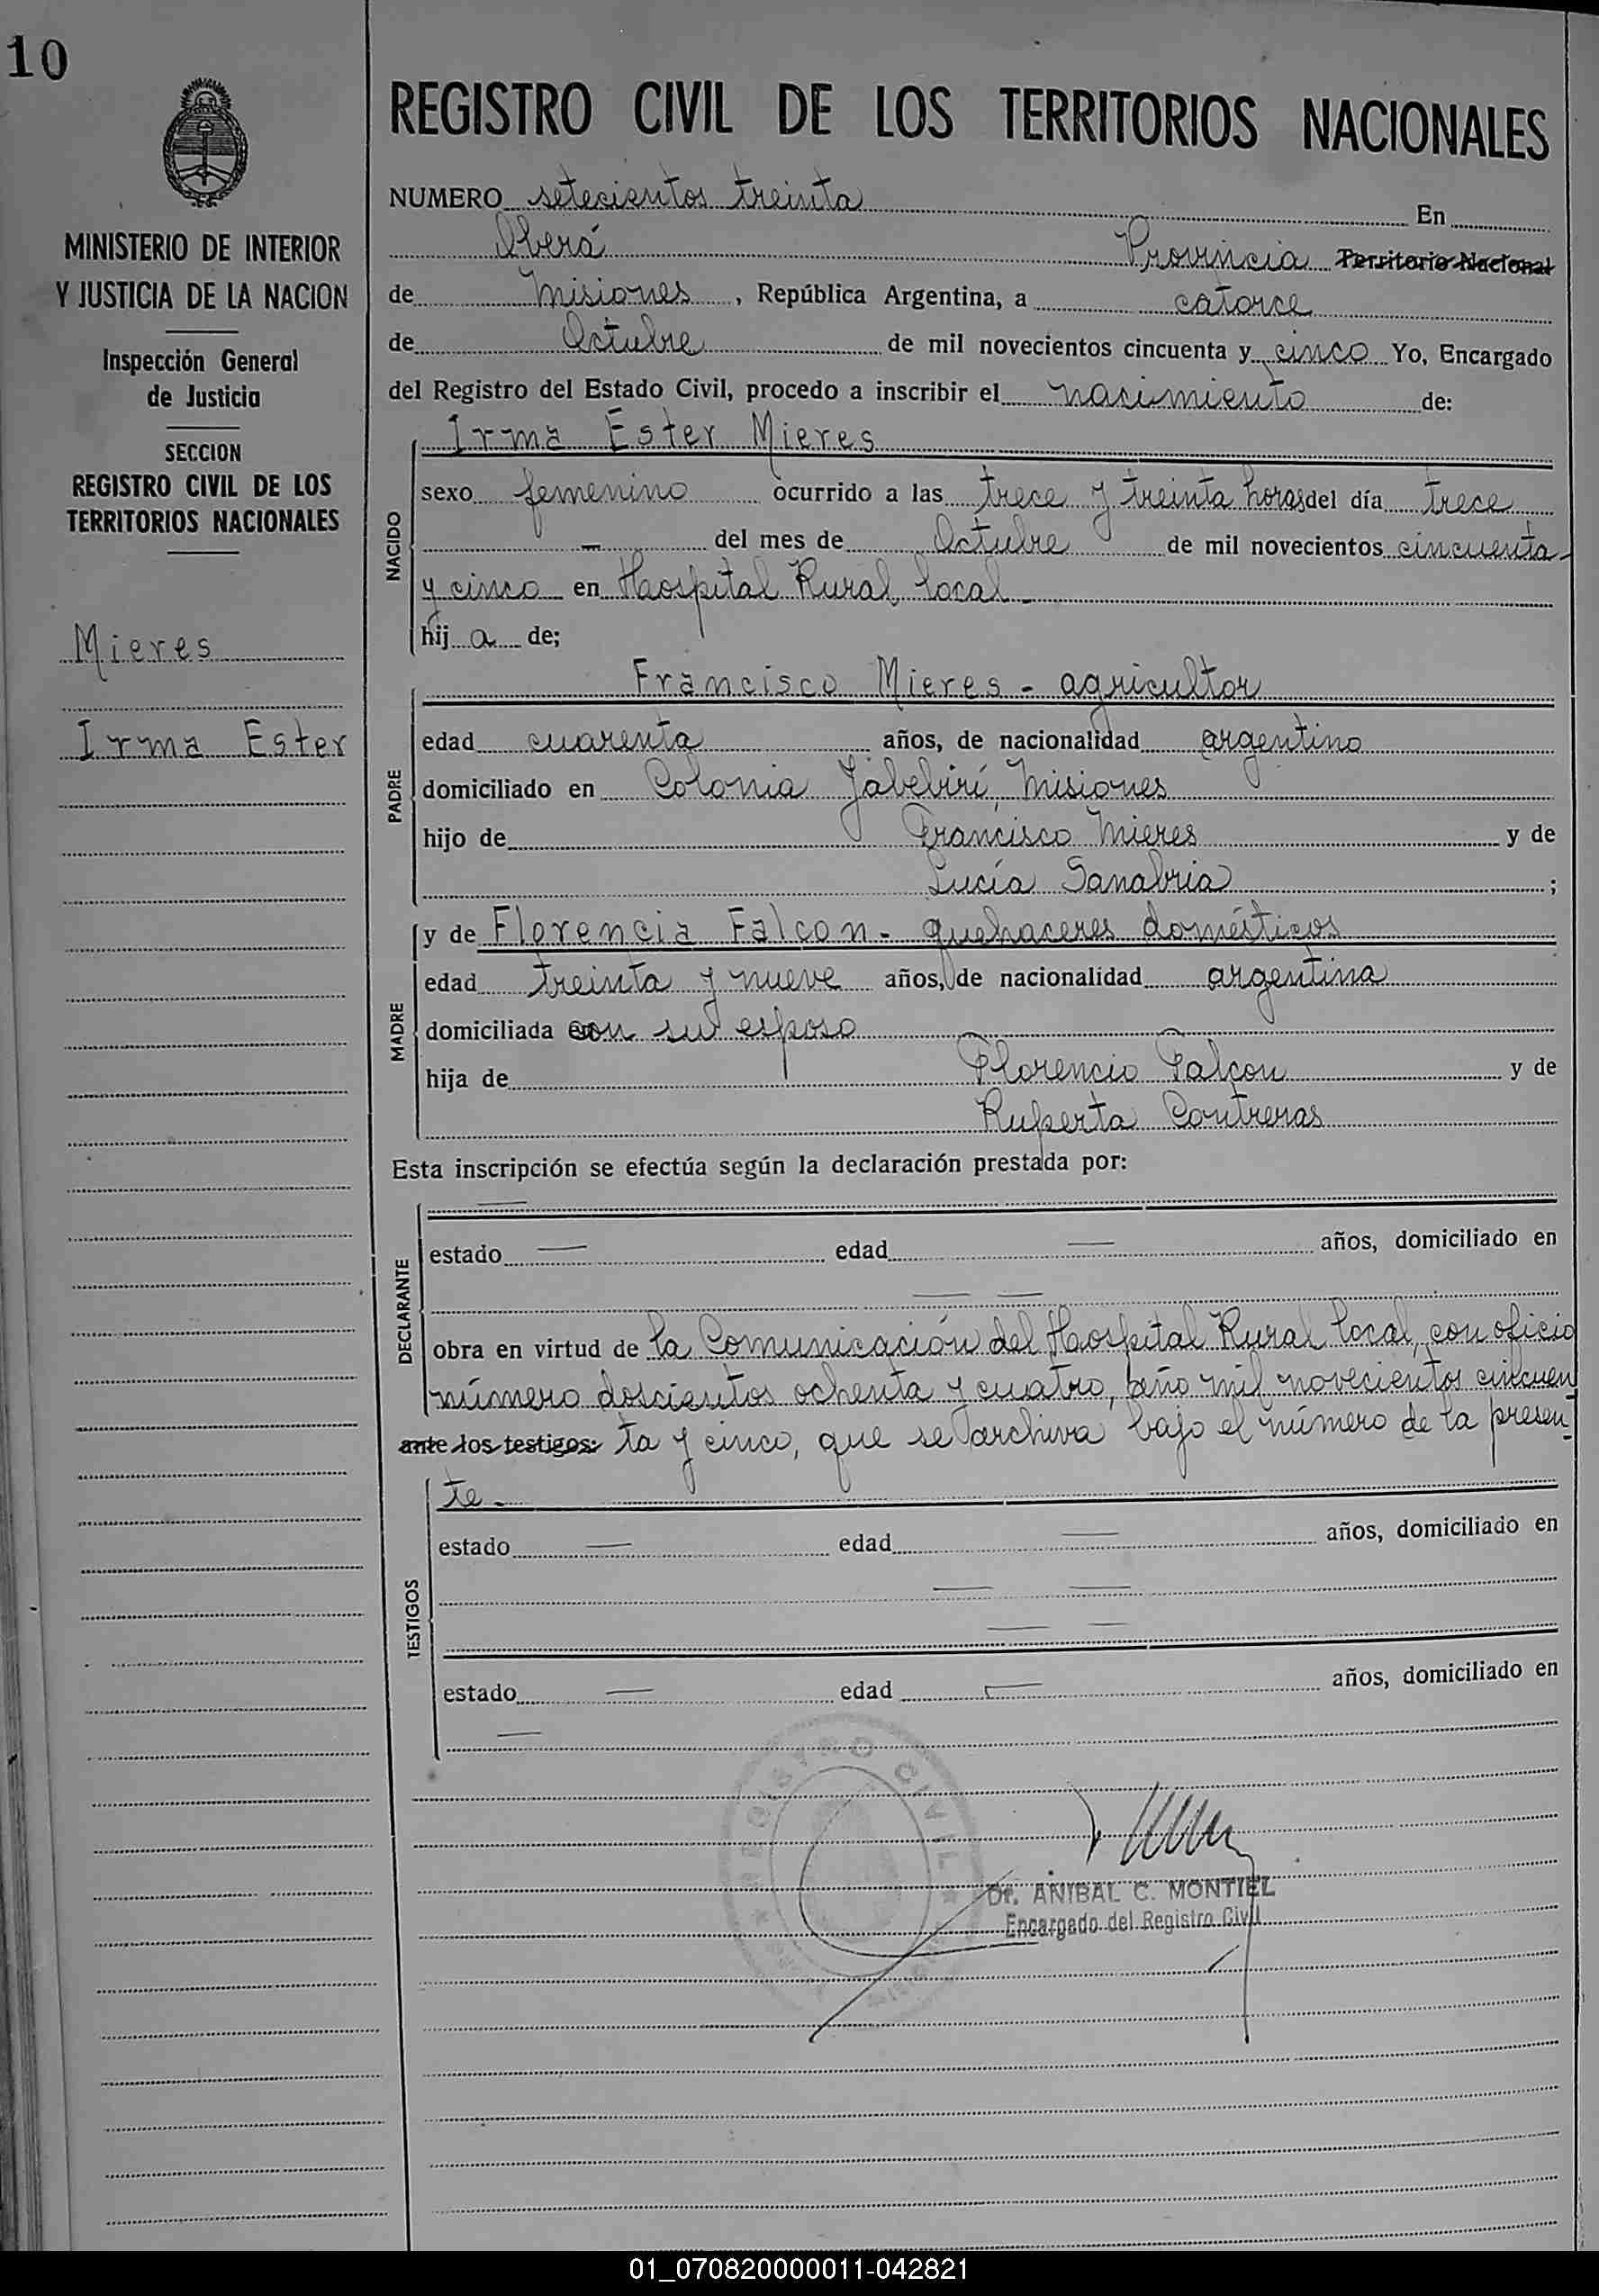 10
MINISTERIO DE INTERIOR
Y JUSTICIA DE LA NACION
Inspección General
de Justicia
SECCION
REGISTRO CIVIL DE LOS
TERRITORIOS NACIONALES
Mieres
Irma Ester
REGISTRO CIVIL DE LOS TERRITORIOS NACIONALES
NUMERO setecientos treinta En
Oberá Provincia Territorio Nacional
de Misiones, República Argentina, a catorce
de Octubre de mil novecientos cincuenta y cinco Yo, Encargado
del Registro del Estado Civil, procedo a inscribir el nacimiento de:
NACIDO
Irma Ester Mieres
sexo femenino ocurrido a las trece y treinta horas del día trece
— del mes de Octubre de mil novecientos cincuenta
y cinco en Hospital Rural local
hija de;
PADRE
Francisco Mieres - agricultor
edad cuarenta años, de nacionalidad argentino
domiciliado en Colonia Yabebirí, Misiones
hijo de Francisco Mieres y de
Lucía Sanabria ;
MADRE
y de Florencia Falcon - quehaceres domésticos
edad treinta y nueve años, de nacionalidad argentina
domiciliada con su esposo
hija de Florencio Falcon y de
Ruperta Contreras
Esta inscripción se efectúa según la declaración prestada por:
DECLARANTE
—
estado — edad — años, domiciliado en
— —
obra en virtud de la Comunicación del Hospital Rural local, con oficio
número doscientos ochenta y cuatro, año mil novecientos cincuen
ante los testigos: ta y cinco, que se archiva bajo el número de la presen-
te.
TESTIGOS
estado — edad — años, domiciliado en
— —
— —
estado — edad — años, domiciliado en
—
REGISTRO CIVIL
Dr. ANIBAL C. MONTIEL
Encargado del Registro Civil
01_070820000011-042821